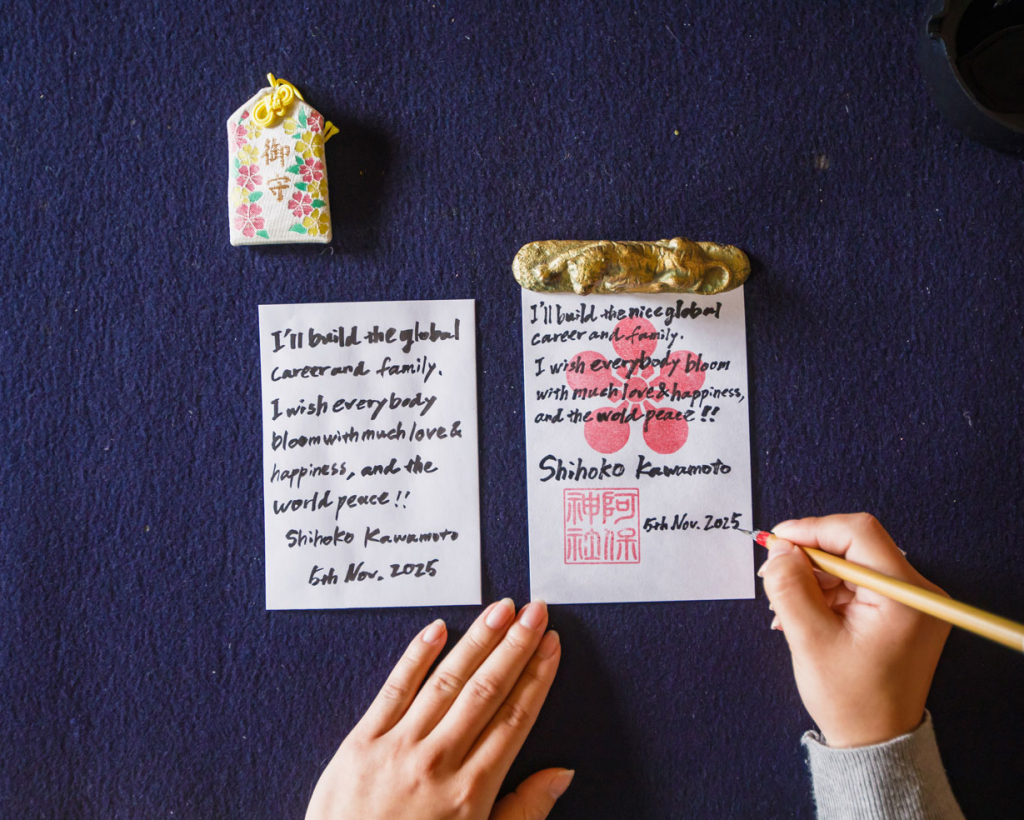 御守
I'll build the global
career and family.
I wish everybody
bloom with much love &
happiness, and the
world peace !!
Shihoko Kawamoto
5th Nov. 2025
I'll build the nice global
career and family.
I wish everybody bloom
with much love & happiness,
and the wold peace !!
Shihoko Kawamoto
阿保
神社
5th Nov. 2025